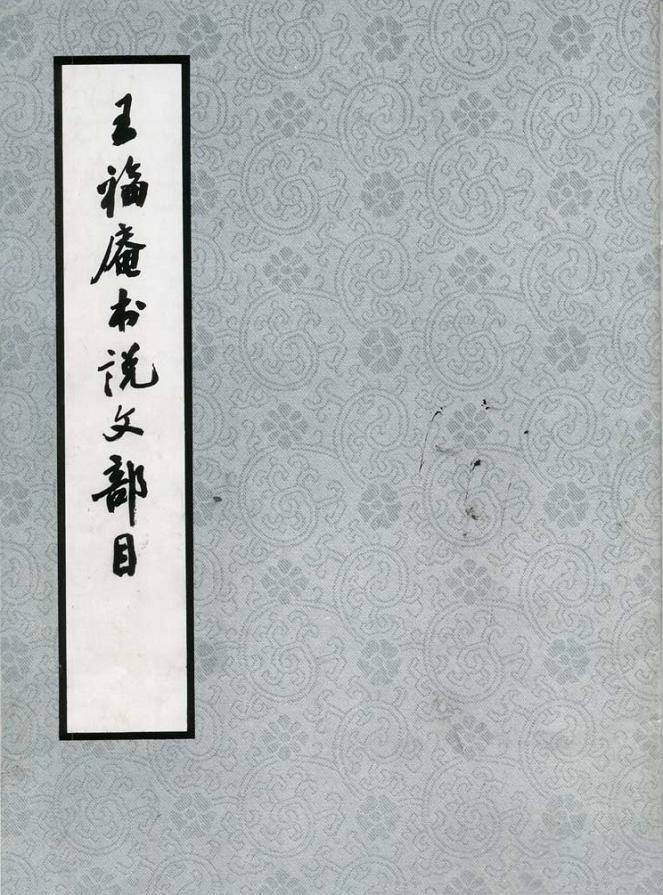 王福庵书说文部目